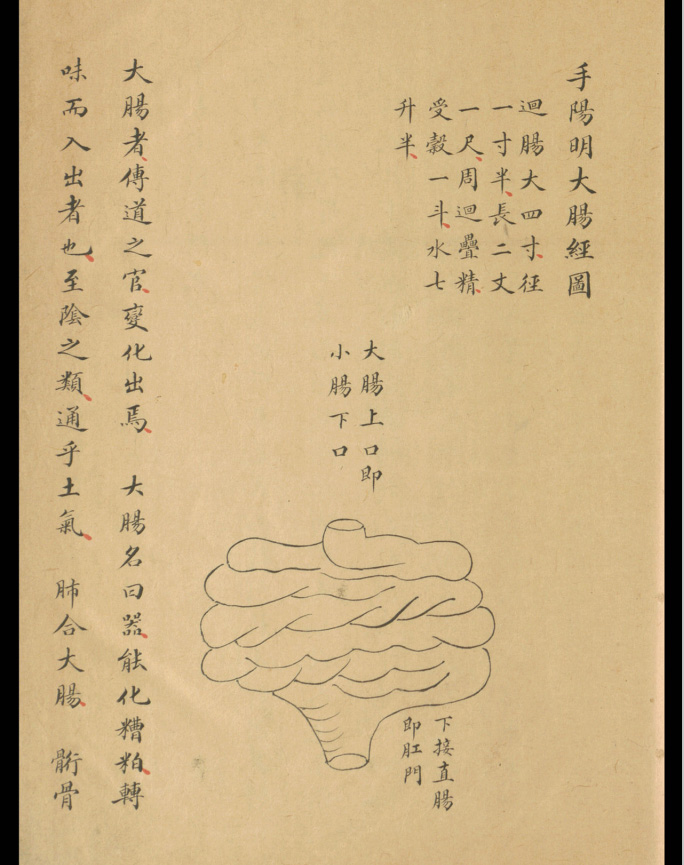 手陽明大腸經圖
迴腸大四寸、徑
一寸半、長二丈
一尺、周迴疊精、
受穀一斗、水七
升半、
大腸上口即
小腸下口
下接直腸
即肛門
大腸者、傳道之官、變化出焉、 大腸名曰器、能化糟粕、轉
味而入出者也、至陰之類、通乎土氣、 肺合大腸、 䯒骨